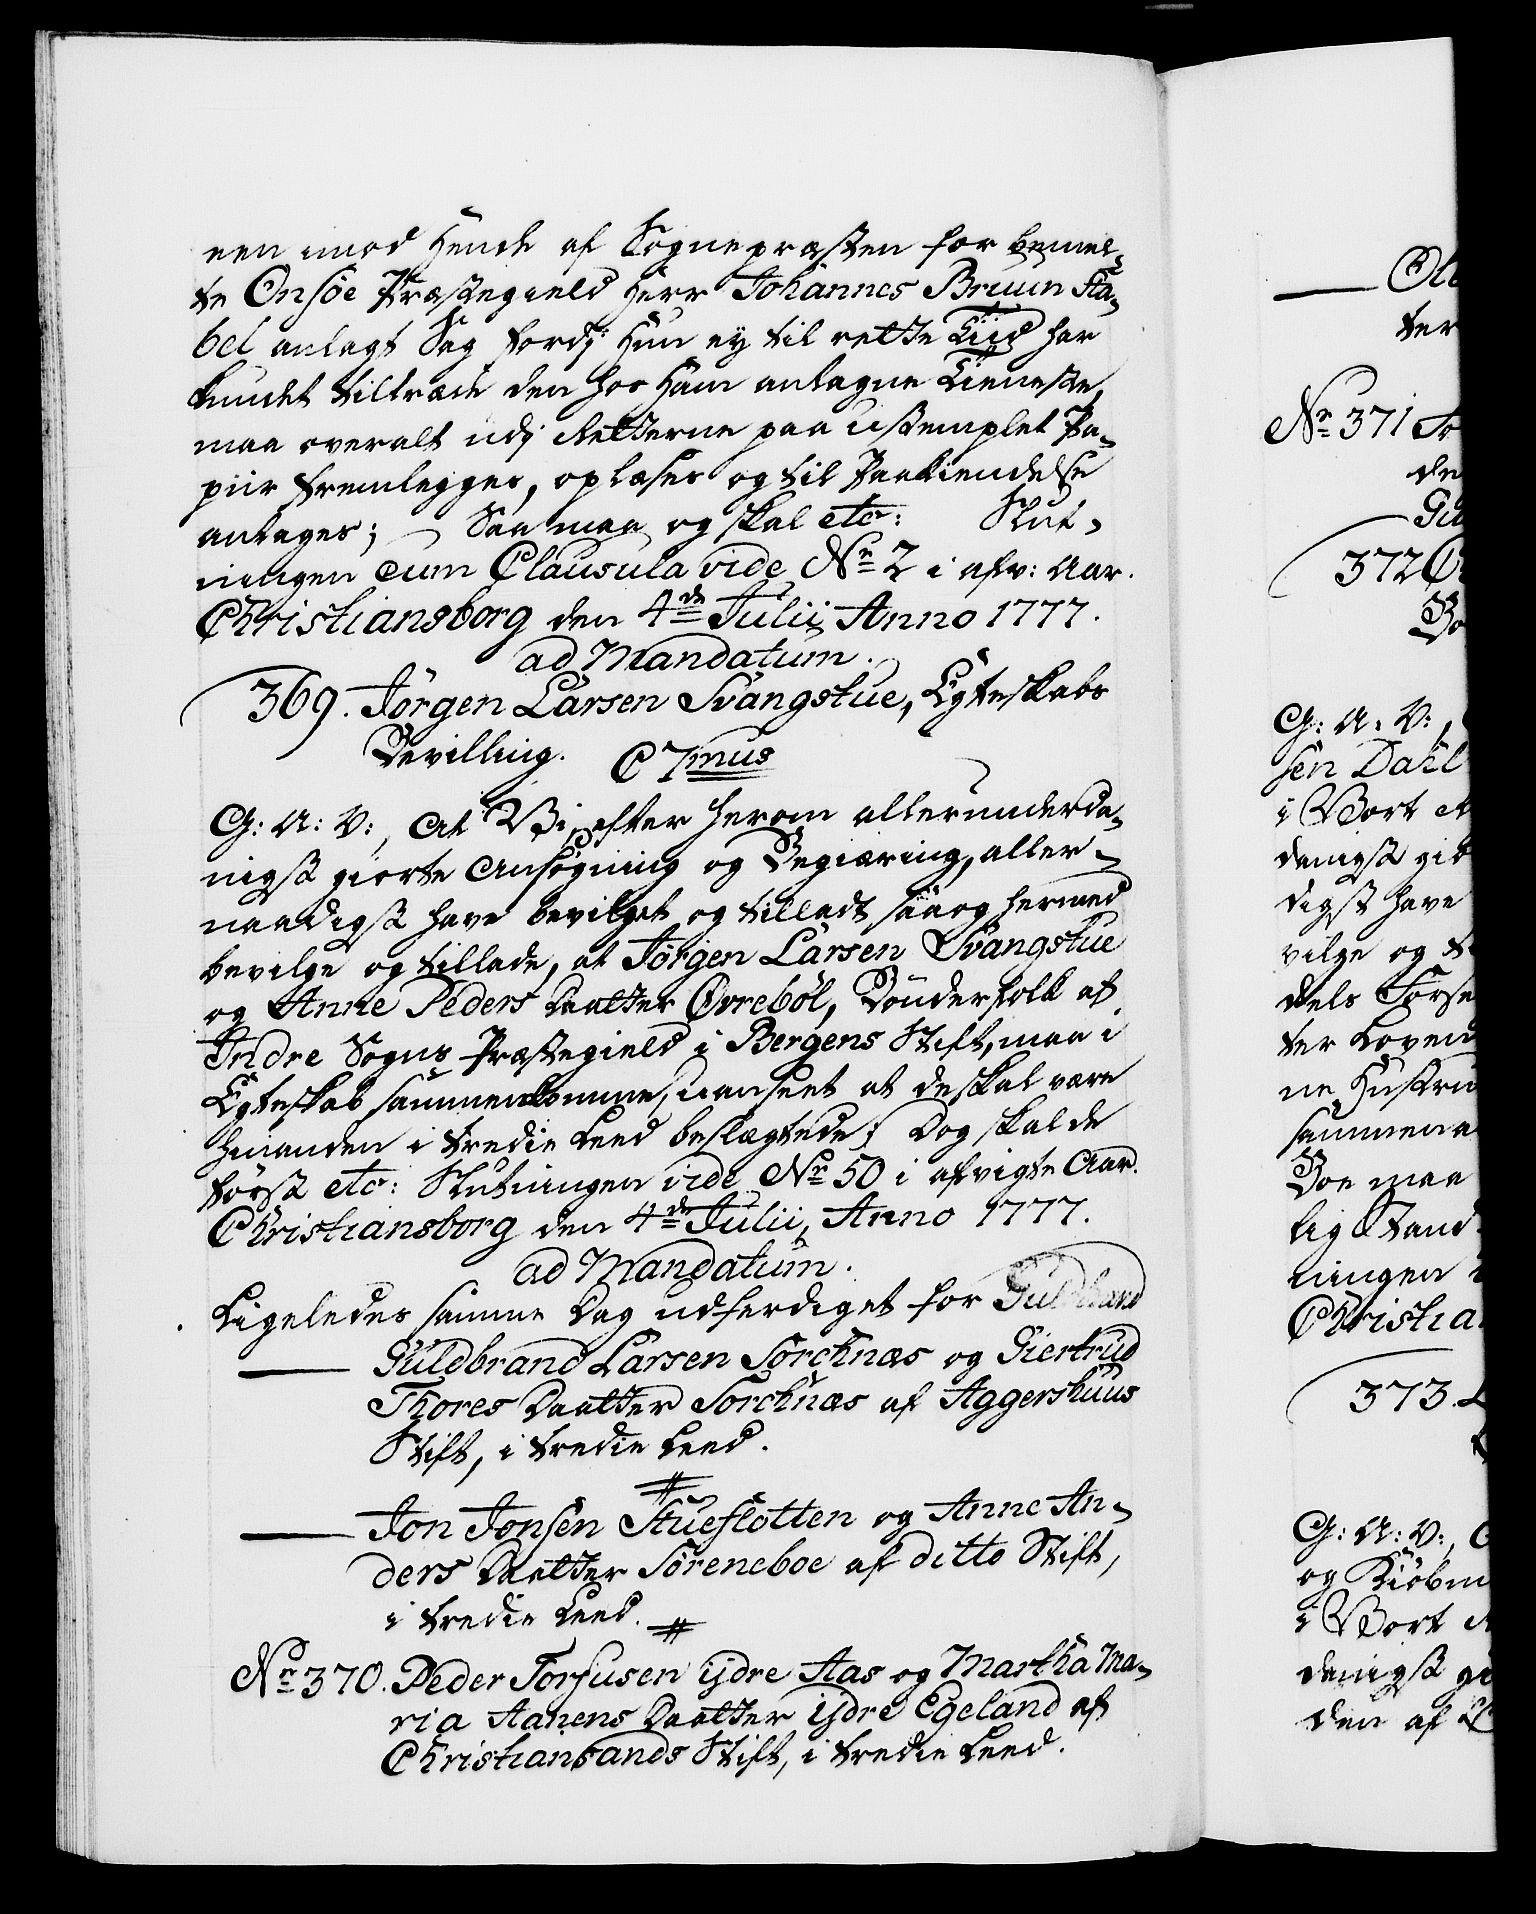 een imod Hende af Sognepræsten for bemel-
te Onsöe Præstegield Herr Johannes Bruun Sta-
bel anlagt Sag fordj Hun ey til rette Tiid har
kundet tiltræde den hos Ham antagne Tieneste,
maa overalt udj Retterne paa ustemplet Pa-
piir fremlegges, oplæses og til Paakiendelse
antages; Saa maa og skal etc: Slut-
ningen cum Clausula vide Nr 2 i afv: Aar.
Christiansborg den 4de Julii Anno 1777.
ad Mandatum.
369. Jörgen Larsen Svangstue, Egteskabs
Bevilling. C 7mus
G: A: V:, At Vi, efter herom allerunderda-
nigst giorte Ansögning og Begiæring, aller-
naadigst have bevilget og tilladt saa og hermed
bevilge og tillade, at Jörgen Larsen Svangstue
og Anne Peders Daatter Övreböl, Bönderfolk af
Indre Sogns Præstegield i Bergens Stift, maa i
Egteskab sammenkomme, uanseet at de skal være
hinanden i tredie Leed beslægtede; Dog skal de
först etc: Slutningen vide Nr 50 i afvigte Aar.
Christiansborg den 4de Julii, Anno 1777.
ad Mandatum.
Ligeledes samme Dag udferdiget for Guldbrand
Guldbrand Larsen Sorcknæs og Giertrud
Thores Daatter Sorcknæs af Aggershuus
Stift, i tredie Leed.
Jon Jonsen Stueflotten og Anne An-
ders Daatter Söreneboe af ditto Stift,
i tredie Leed.
Nr 370. Peder Torjusen ijdre Aas og Martha Ma-
ria Aanens Daatter ijdre Egeland af
Christiansands Stift, i tredie Leed.
ter
Nr 371
de
372
G: A: V:,
sen Dahl
i Vort
danigst gi
digst have
vilge og t
dels Torse
ter Loven
ne Hustru
sammen
Boe maa
lig Stand
ningen
Christia
373.
G: A: V:,
og Kiöbm
i Vort
danigst gi
den af